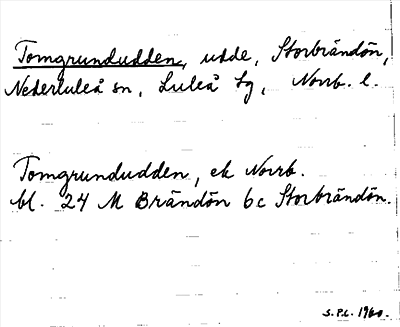 Tomgrundudden, udde, Storbrändön,
Nederluleå sn, Luleå tg, Norrb. l.
Tomgrundudden, ek Norrb.
bl. 24 M Brändön 6c Storbrändön.
S.P.L. 1960.